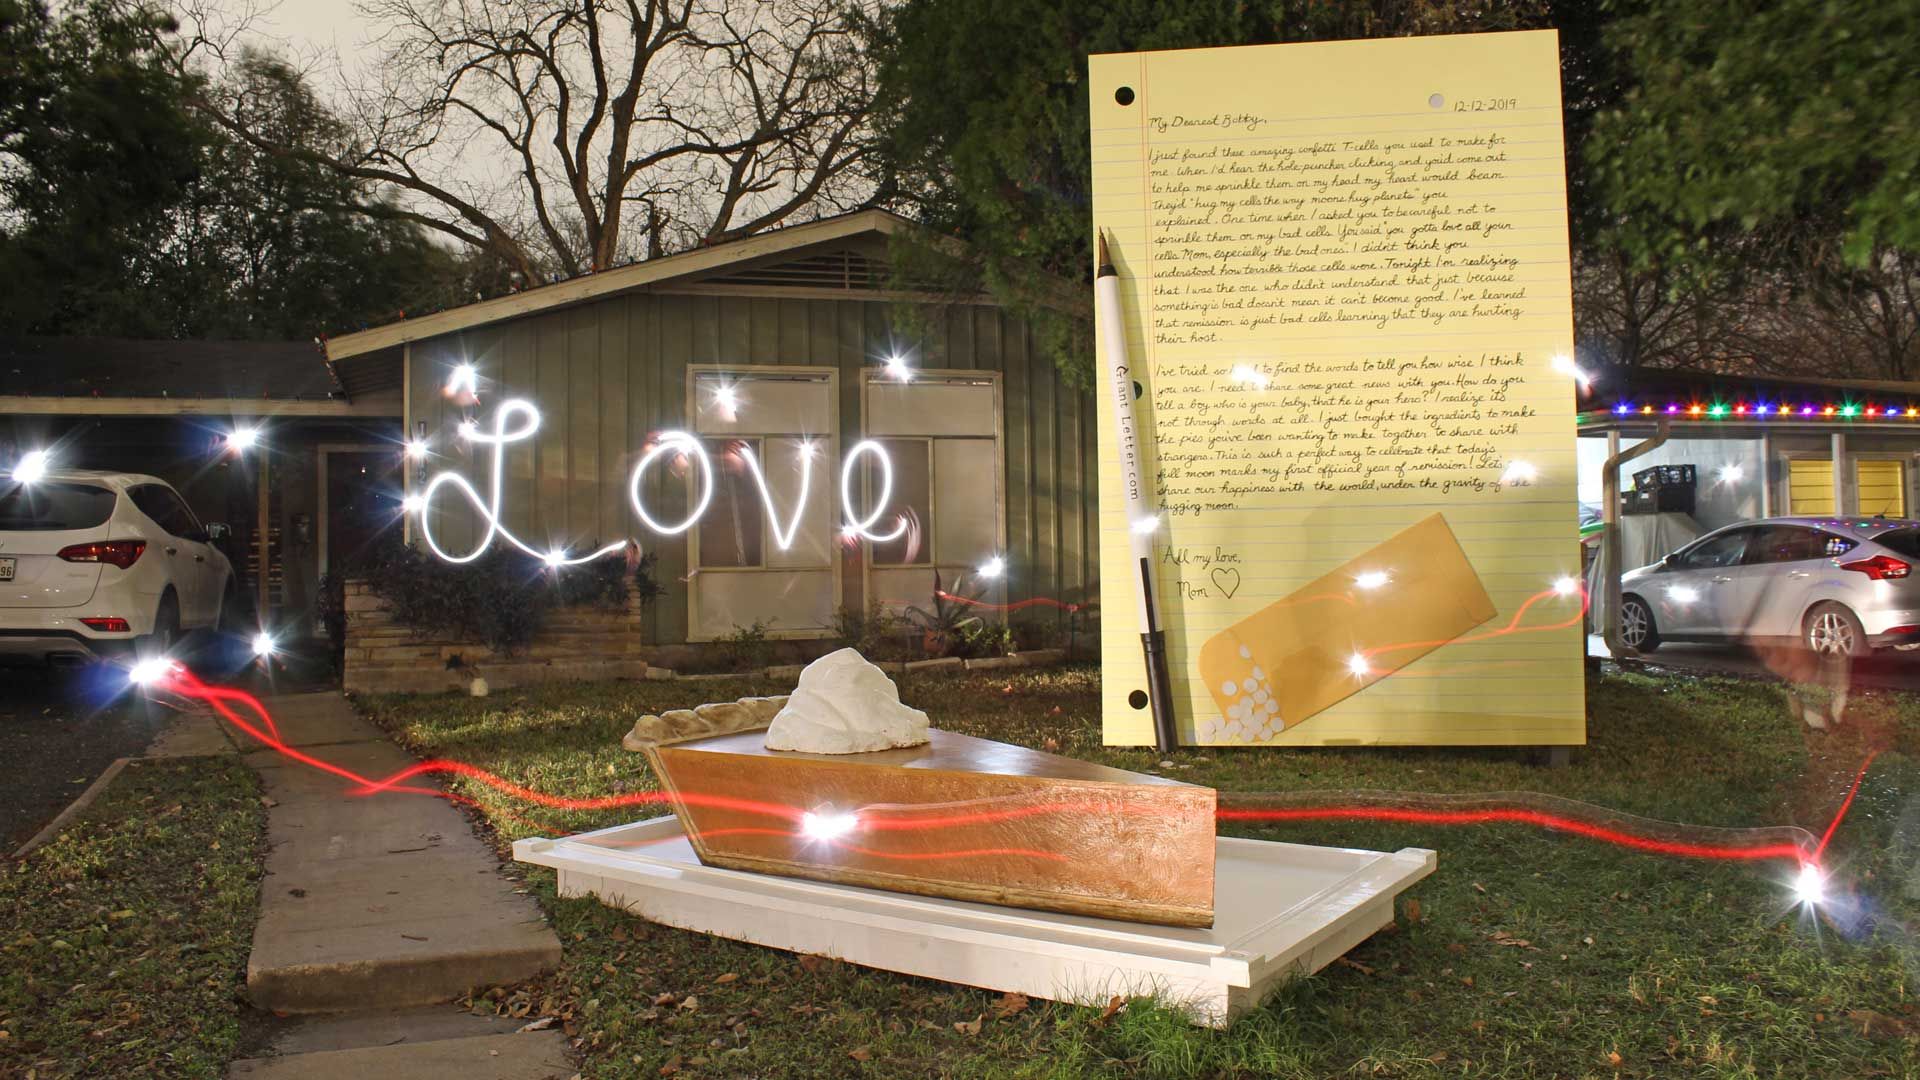 Love
12-12-2019
My Dearest Bobby,
I just found these amazing confetti T-cells you used to make for
me. When I'd hear the hole puncher clicking and you'd come out
to help me sprinkle them on my head my heart would beam.
They'd "hug my cells the way moons hug planets" you
explained. One time when I asked you to be careful not to
sprinkle them on my bad cells. You said "you gotta love all your
cells Mom, especially the bad ones." I didn't think you
understood how terrible those cells were. Tonight I'm realizing
that I was the one who didn't understand that just because
something is bad doesn't mean it can't become good. I've learned
that remission is just bad cells learning that they are hurting
their host.
I've tried so to find the words to tell you how wise I think
you are. I need to share some great news with you. How do you
tell a boy who is your baby, that he is your hero? I realize it's
not through words at all. I just bought the ingredients to make
the pies you've been wanting to make together to share with
strangers. This is such a perfect way to celebrate that today's
full moon marks my first official year of remission! Let's
share our happiness with the world, under the gravity of the
hugging moon.
All my love,
Mom
Giant Letter.com
96